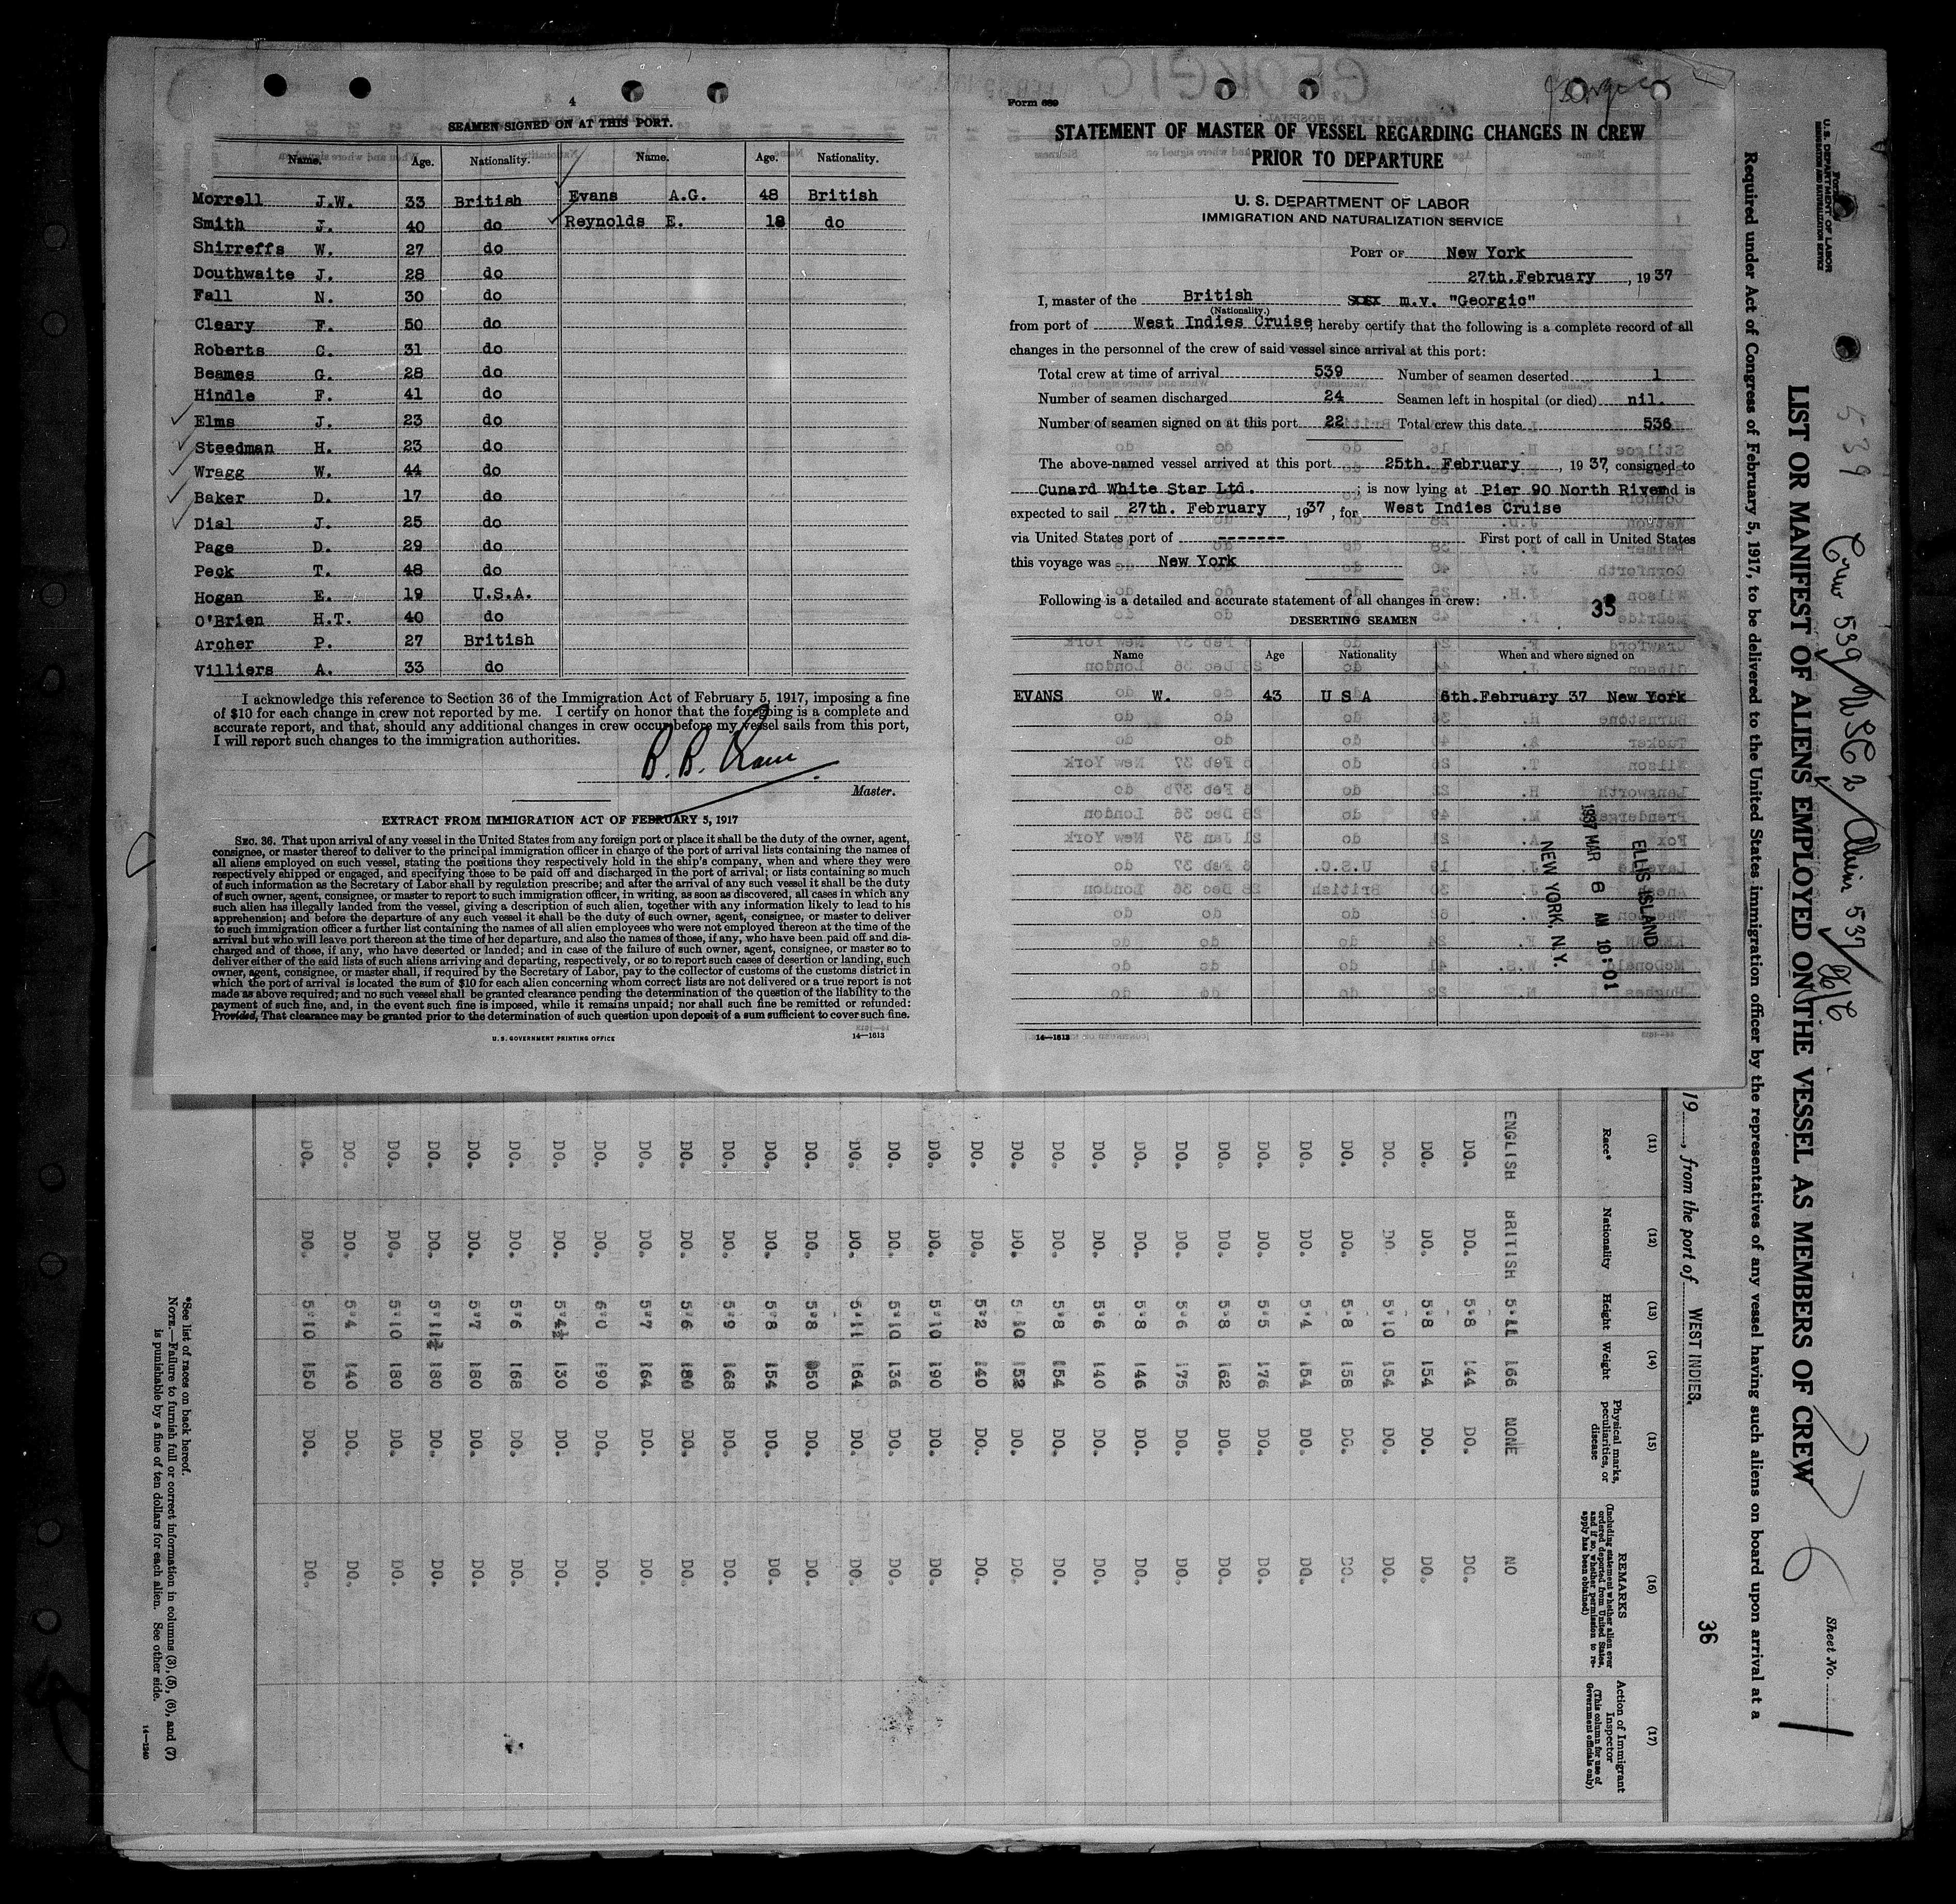 4
SEAMEN SIGNED ON AT THIS PORT.
Name. Age. Nationality. Name. Age. Nationality.
Morrell J.W. 33 British Evans A.G. 48 British
Smith J. 40 do Reynolds E. 18 do
Shirreffs W. 27 do
Douthwaite J. 28 do
Fall N. 30 do
Cleary F. 50 do
Roberts C. 31 do
Beames G. 28 do
Hindle F. 41 do
Elms J. 23 do
Steedman H. 23 do
Wragg W. 44 do
Baker D. 17 do
Dial J. 25 do
Page D. 29 do
Peck T. 48 do
Hogan E. 19 U.S.A.
O'Brien H.T. 40 do
Archer P. 27 British
Villiers A. 33 do
I acknowledge this reference to Section 36 of the Immigration Act of February 5, 1917, imposing a fine
of $10 for each change in crew not reported by me. I certify on honor that the foregoing is a complete and
accurate report, and that, should any additional changes in crew occur before my vessel sails from this port,
I will report such changes to the immigration authorities.
Master.
EXTRACT FROM IMMIGRATION ACT OF FEBRUARY 5, 1917
SEC. 36. That upon arrival of any vessel in the United States from any foreign port or place it shall be the duty of the owner, agent,
consignee, or master thereof to deliver to the principal immigration officer in charge of the port of arrival lists containing the names of
all aliens employed on such vessel, stating the positions they respectively hold in the ship's company, when and where they were
respectively shipped or engaged, and specifying those to be paid off and discharged in the port of arrival; or lists containing so much
of such information as the Secretary of Labor shall by regulation prescribe; and after the arrival of any such vessel it shall be the duty
of such owner, agent, consignee, or master to report to such immigration officer, in writing, as soon as discovered, all cases in which any
such alien has illegally landed from the vessel, giving a description of such alien, together with any information likely to lead to his
apprehension; and before the departure of any such vessel it shall be the duty of such owner, agent, consignee, or master to deliver
to such immigration officer a further list containing the names of all alien employees who were not employed thereon at the time of the
arrival but who will leave port thereon at the time of her departure, and also the names of those, if any, who have been paid off and dis-
charged and of those, if any, who have deserted or landed; and in case of the failure of such owner, agent, consignee, or master so to
deliver either of the said lists of such aliens arriving and departing, respectively, or so to report such cases of desertion or landing, such
owner, agent, consignee, or master shall, if required by the Secretary of Labor, pay to the collector of customs of the customs district in
which the port of arrival is located the sum of $10 for each alien concerning whom correct lists are not delivered or a true report is not
made as above required; and no such vessel shall be granted clearance pending the determination of the question of the liability to the
payment of such fine, and, in the event such fine is imposed, while it remains unpaid; nor shall such fine be remitted or refunded:
Provided, That clearance may be granted prior to the determination of such question upon deposit of a sum sufficient to cover such fine.
U. S. GOVERNMENT PRINTING OFFICE 14—1613
Form 689
Georgic
STATEMENT OF MASTER OF VESSEL REGARDING CHANGES IN CREW
PRIOR TO DEPARTURE
U. S. DEPARTMENT OF LABOR
IMMIGRATION AND NATURALIZATION SERVICE
PORT OF New York
27th.February, 1937
I, master of the British m.v. "Georgic"
(Nationality.)
from port of West Indies Cruise, hereby certify that the following is a complete record of all
changes in the personnel of the crew of said vessel since arrival at this port:
Total crew at time of arrival 539 Number of seamen deserted 1
Number of seamen discharged 24 Seamen left in hospital (or died) nil.
Number of seamen signed on at this port 22 Total crew this date 536
The above-named vessel arrived at this port 25th. February, 1937, consigned to
Cunard White Star Ltd. ; is now lying at Pier 90 North River and is
expected to sail 27th. February, 1937, for West Indies Cruise
via United States port of ------- First port of call in United States
this voyage was New York
Following is a detailed and accurate statement of all changes in crew: 35
DESERTING SEAMEN
Name Age Nationality When and where signed on
EVANS W. 43 U S A 6th.February 37 New York
14—1613
ELLIS ISLAND
1937 MAR 6 AM 10:01
NEW YORK, N.Y.
U. S. DEPARTMENT OF LABOR
IMMIGRATION AND NATURALIZATION SERVICE
539
Crew 539
Sheet No. 1
LIST OR MANIFEST OF ALIENS EMPLOYED ON THE VESSEL AS MEMBERS OF CREW
Required under Act of Congress of February 5, 1917, to be delivered to the United States immigration officer by the representatives of any vessel having such aliens on board upon arrival at a
19 , from the port of WEST INDIES. 36
(11) (12) (13) (14) (15) (16) (17)
Race* Nationality Height Weight Physical marks, peculiarities, or disease REMARKS (Including statement whether alien ever ordered deported from United States, and if so, whether permission to re-apply has been obtained) Action of Immigrant Inspector (This column for use of Government officials only)
ENGLISH BRITISH 5'11 166 NONE NO
DO. DO. 5'8 144 DO. DO.
DO. DO. 5'8 154 DO. DO.
DO. DO. 5'10 154 DO. DO.
DO. DO. 5'8 158 DO. DO.
DO. DO. 5'4 154 DO. DO.
DO. DO. 5'5 176 DO. DO.
DO. DO. 5'8 162 DO. DO.
DO. DO. 5'6 175 DO. DO.
DO. DO. 5'8 146 DO. DO.
DO. DO. 5'6 140 DO. DO.
DO. DO. 5'8 154 DO. DO.
DO. DO. 5'10 152 DO. DO.
DO. DO. 5'2 140 DO. DO.
DO. DO. 5'10 190 DO. DO.
DO. DO. 5'10 136 DO. DO.
DO. DO. 5'11 164 DO. DO.
DO. DO. 5'8 DO. DO.
DO. DO. 5'8 154 DO. DO.
DO. DO. 5'9 168 DO. DO.
DO. DO. 5'6 180 DO. DO.
DO. DO. 5'7 164 DO. DO.
DO. DO. 6'0 190 DO. DO.
DO. DO. 5'4½ 130 DO. DO.
DO. DO. 5'6 168 DO. DO.
DO. DO. 5'7 180 DO. DO.
DO. DO. 5'11½ 180 DO. DO.
DO. DO. 5'10 180 DO. DO.
DO. DO. 5'4 140 DO. DO.
DO. DO. 5'10 150 DO. DO.
*See list of races on back hereof.
NOTE.—Failure to furnish full or correct information in columns (3), (5), (6), and (7)
is punishable by a fine of ten dollars for each alien. See other side.
14—1240